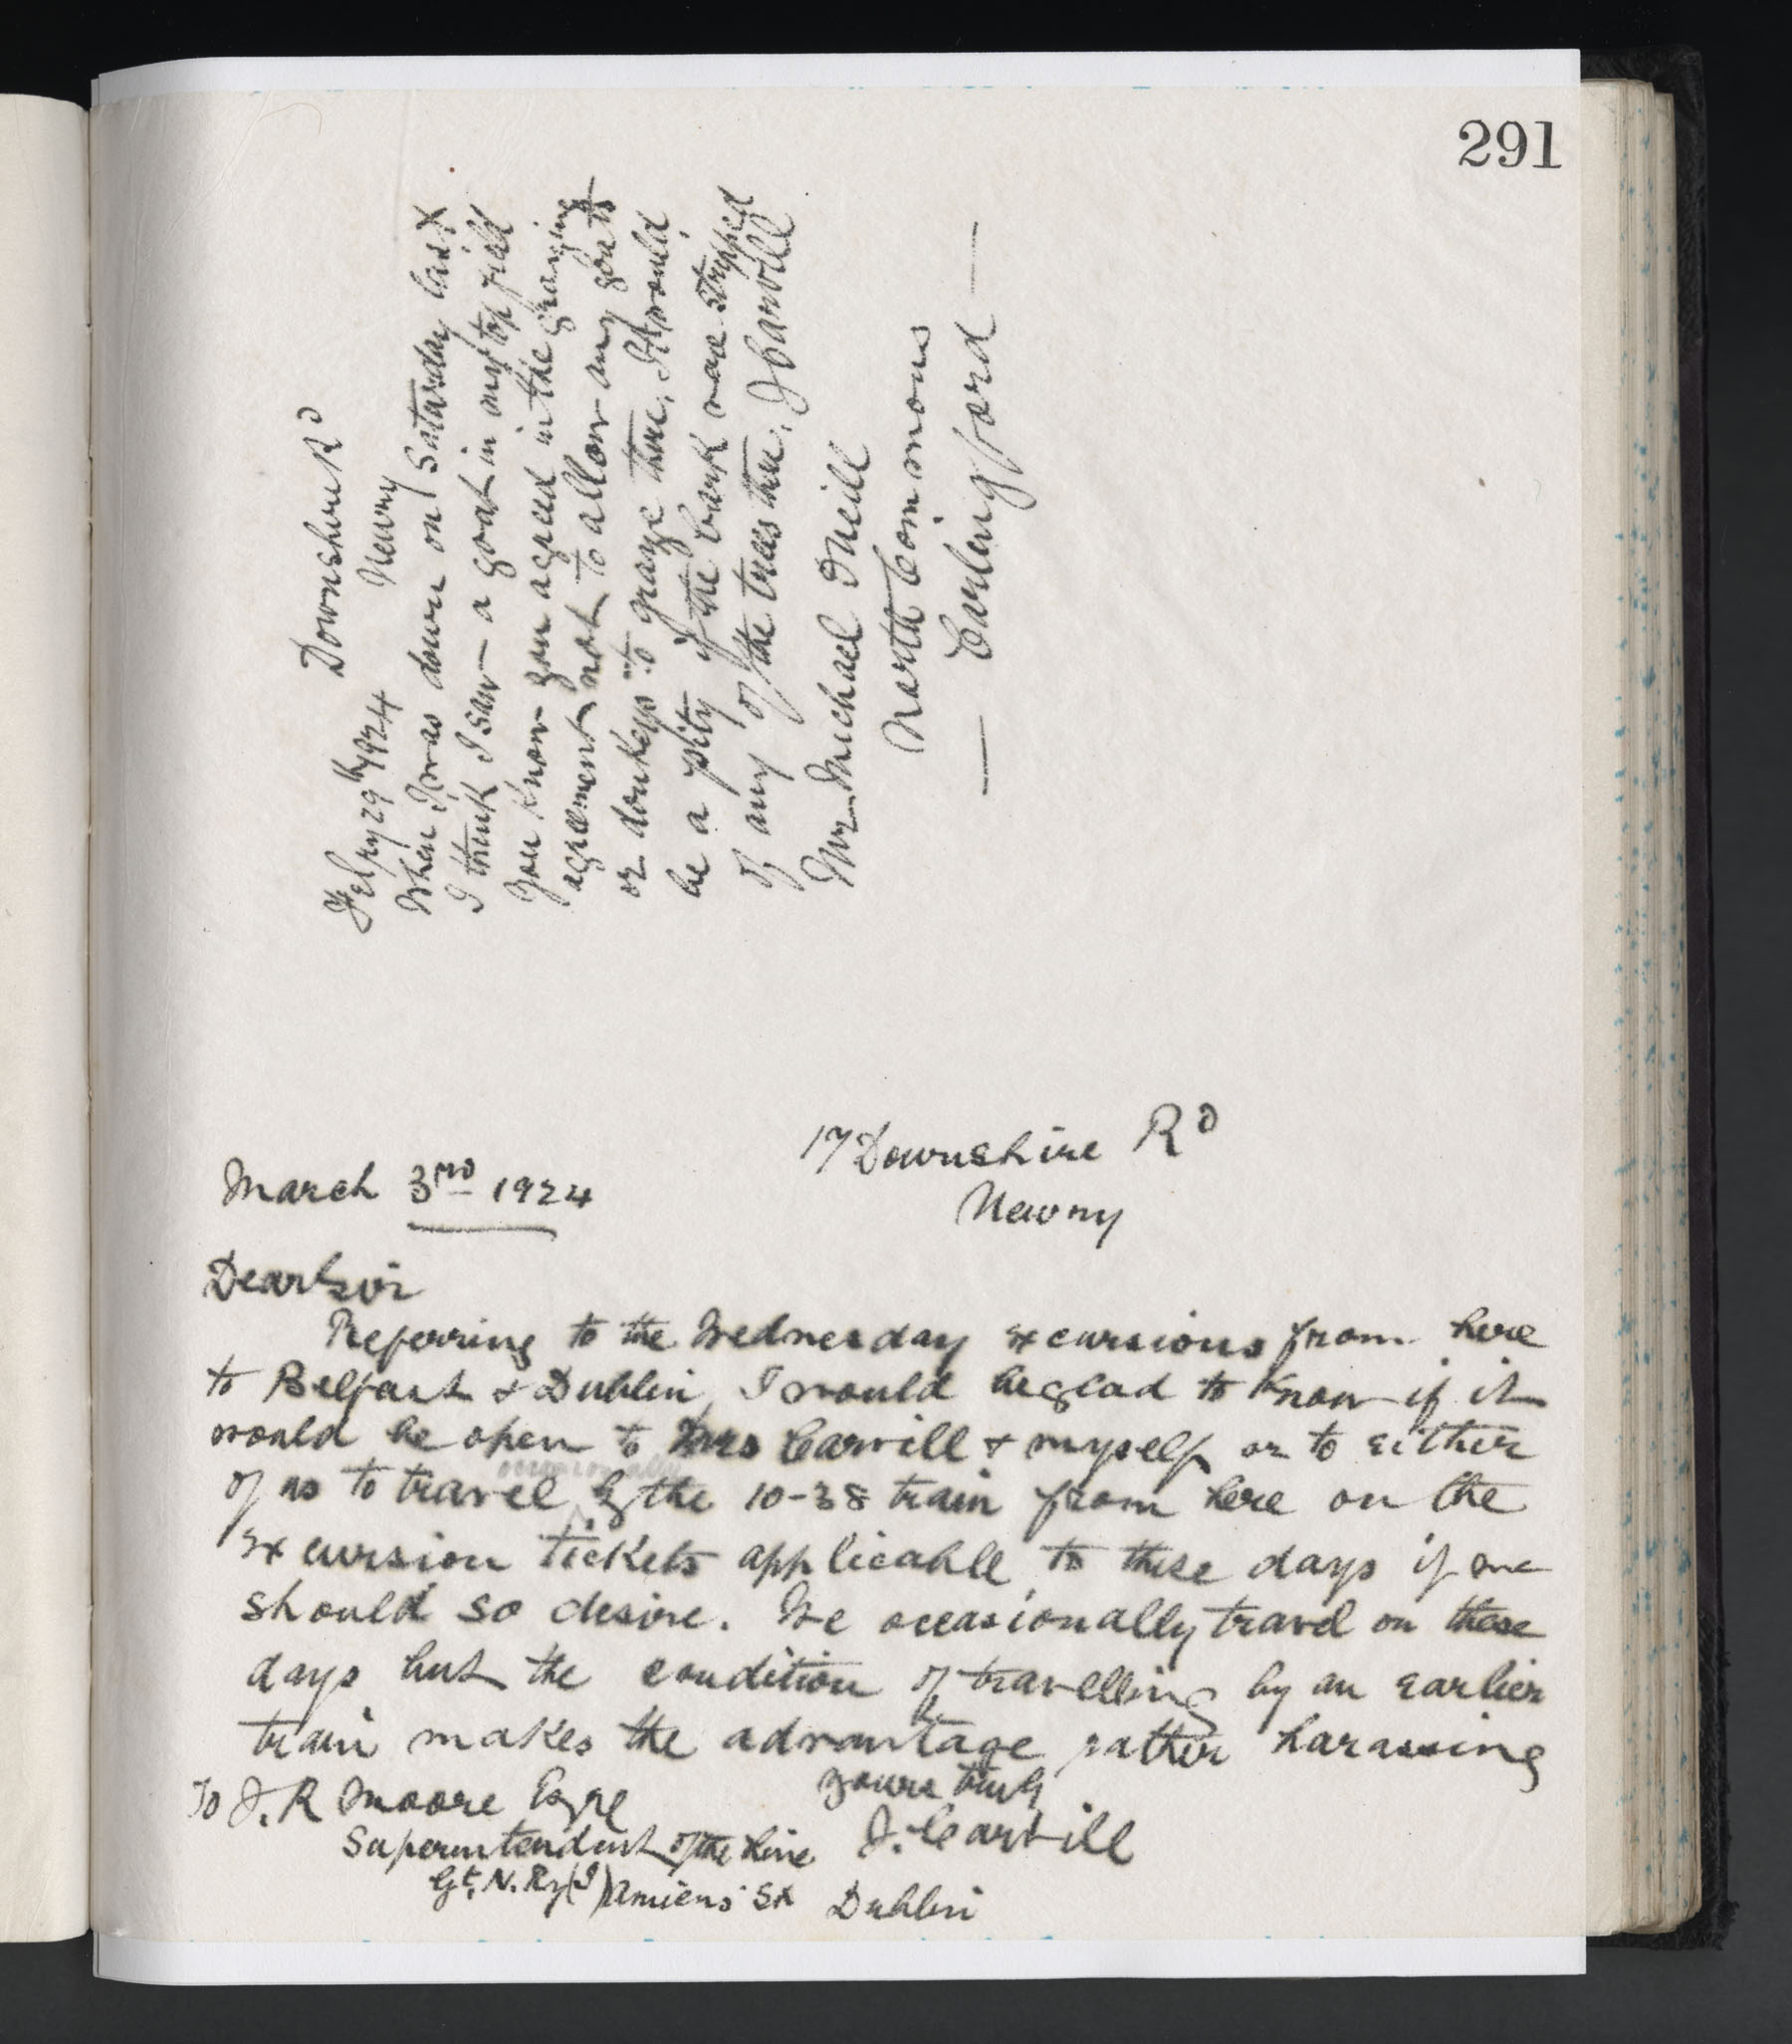 291
Downshire Rd
Newry
Febry 29th 1924
When I was down on Saturday last
I think I saw a goat in my top field
You know you agreed in the grazing
agreement not to allow any goats
or donkeys to graze there. It would
be a pity if the bark were stripped
off any of the trees there. J Carvill
Mr Michael O'Neill
North Commons
— Carlingford —
17 Downshire Rd
Newry
March 3rd 1924
Dear Sir
Referring to the Wednesday excursions from here
to Belfast & Dublin, I would be glad to know if it
would be open to Mrs Carvill & myself or to either
occasionally
of us to travel by the 10-38 train from here on the
excursion tickets applicable to these days if we
should so desire. We occasionally travel on these
days but the condition of travelling by an earlier
train makes the advantage rather harassing
yours truly
J. Carvill
To J. R Moore Esqre
Superintendent of the Line
Gt. N. Ry (I) Amiens St Dublin